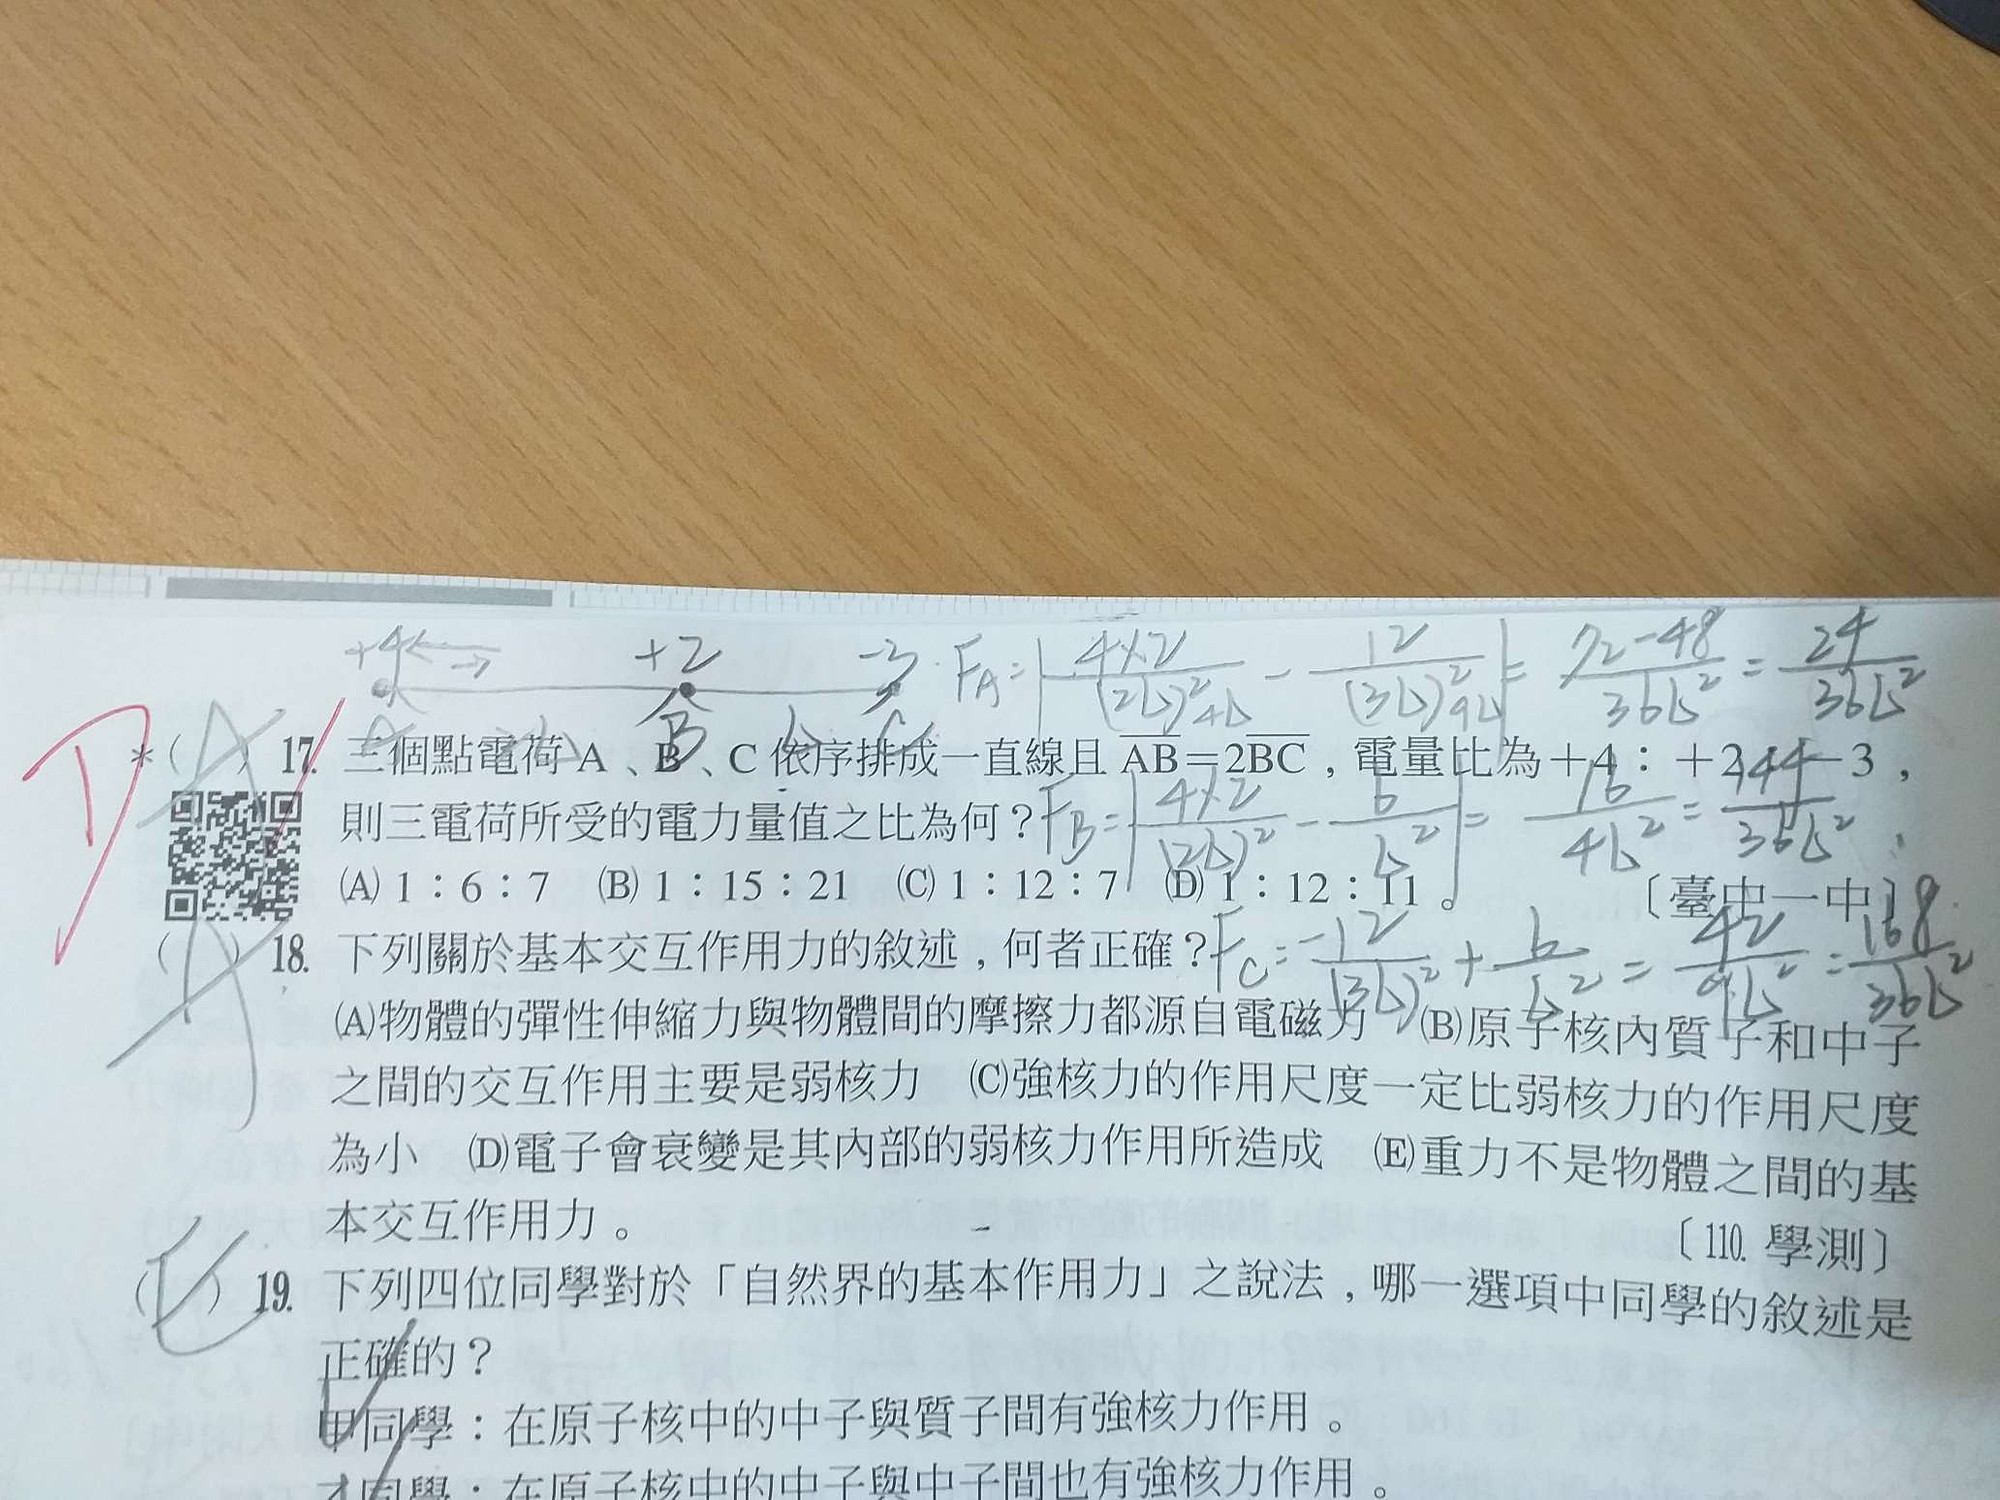 +4 +2 -3 F_A = | 4×2/(2L)² 4L - 12/(3L)² 9L | = 72-48/36L² = 24/36L²
A B L C
D
*(A) 17. 三個點電荷 A、B、C 依序排成一直線且 AB=2BC，電量比為+4：+2：-3，
則三電荷所受的電力量值之比為何？
F_B = | 4×2/(2L)² - 6/L² | = 16/4L² = 144/36L²
(A) 1：6：7 (B) 1：15：21 (C) 1：12：7 (D) 1：12：11。 〔臺中一中〕
(A) 18. 下列關於基本交互作用力的敘述，何者正確？
F_C = -12/(3L)² + 6/L² = 42/9L² = 168/36L²
(A)物體的彈性伸縮力與物體間的摩擦力都源自電磁力 (B)原子核內質子和中子
之間的交互作用主要是弱核力 (C)強核力的作用尺度一定比弱核力的作用尺度
為小 (D)電子會衰變是其內部的弱核力作用所造成 (E)重力不是物體之間的基
本交互作用力。 〔110. 學測〕
(E) 19. 下列四位同學對於「自然界的基本作用力」之說法，哪一選項中同學的敘述是
正確的？
甲同學：在原子核中的中子與質子間有強核力作用。
乙同學：在原子核中的中子與中子間也有強核力作用。